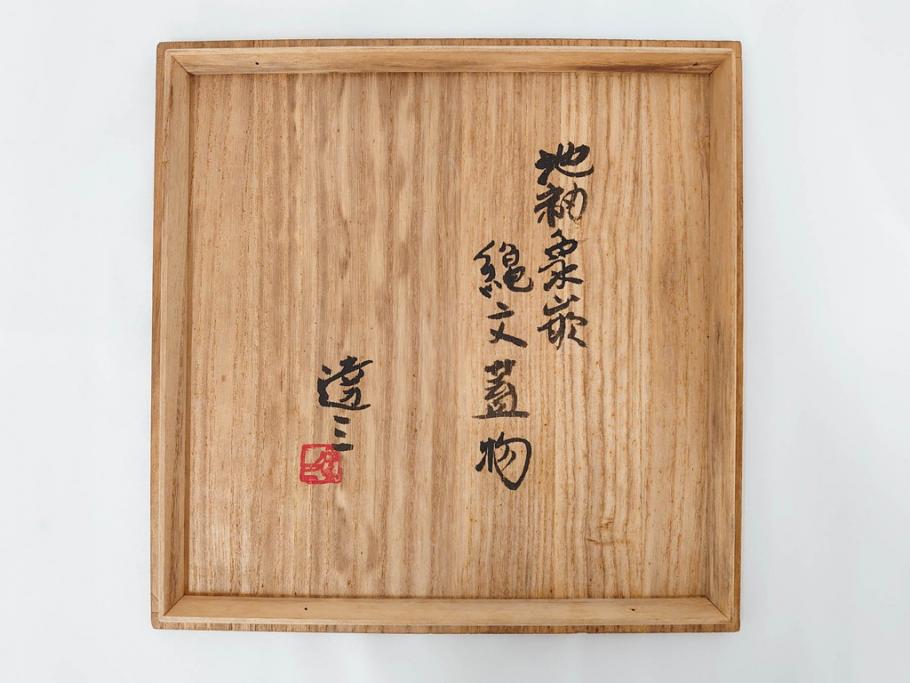 地釉象嵌
縄文蓋物
達三